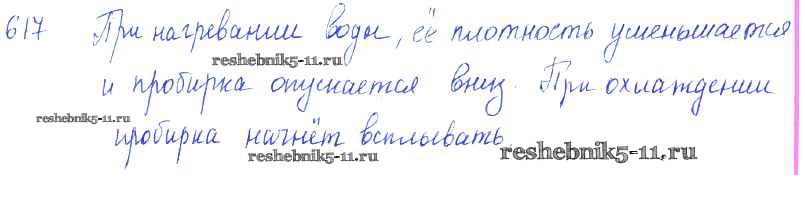 617 При нагревании воды, её плотность уменьшается
reshebnik5-11.ru
и пробирка опускается вниз. При охлаждении
reshebnik5-11.ru
пробирка начнёт всплывать
reshebnik5-11.ru
reshebnik5-11.ru